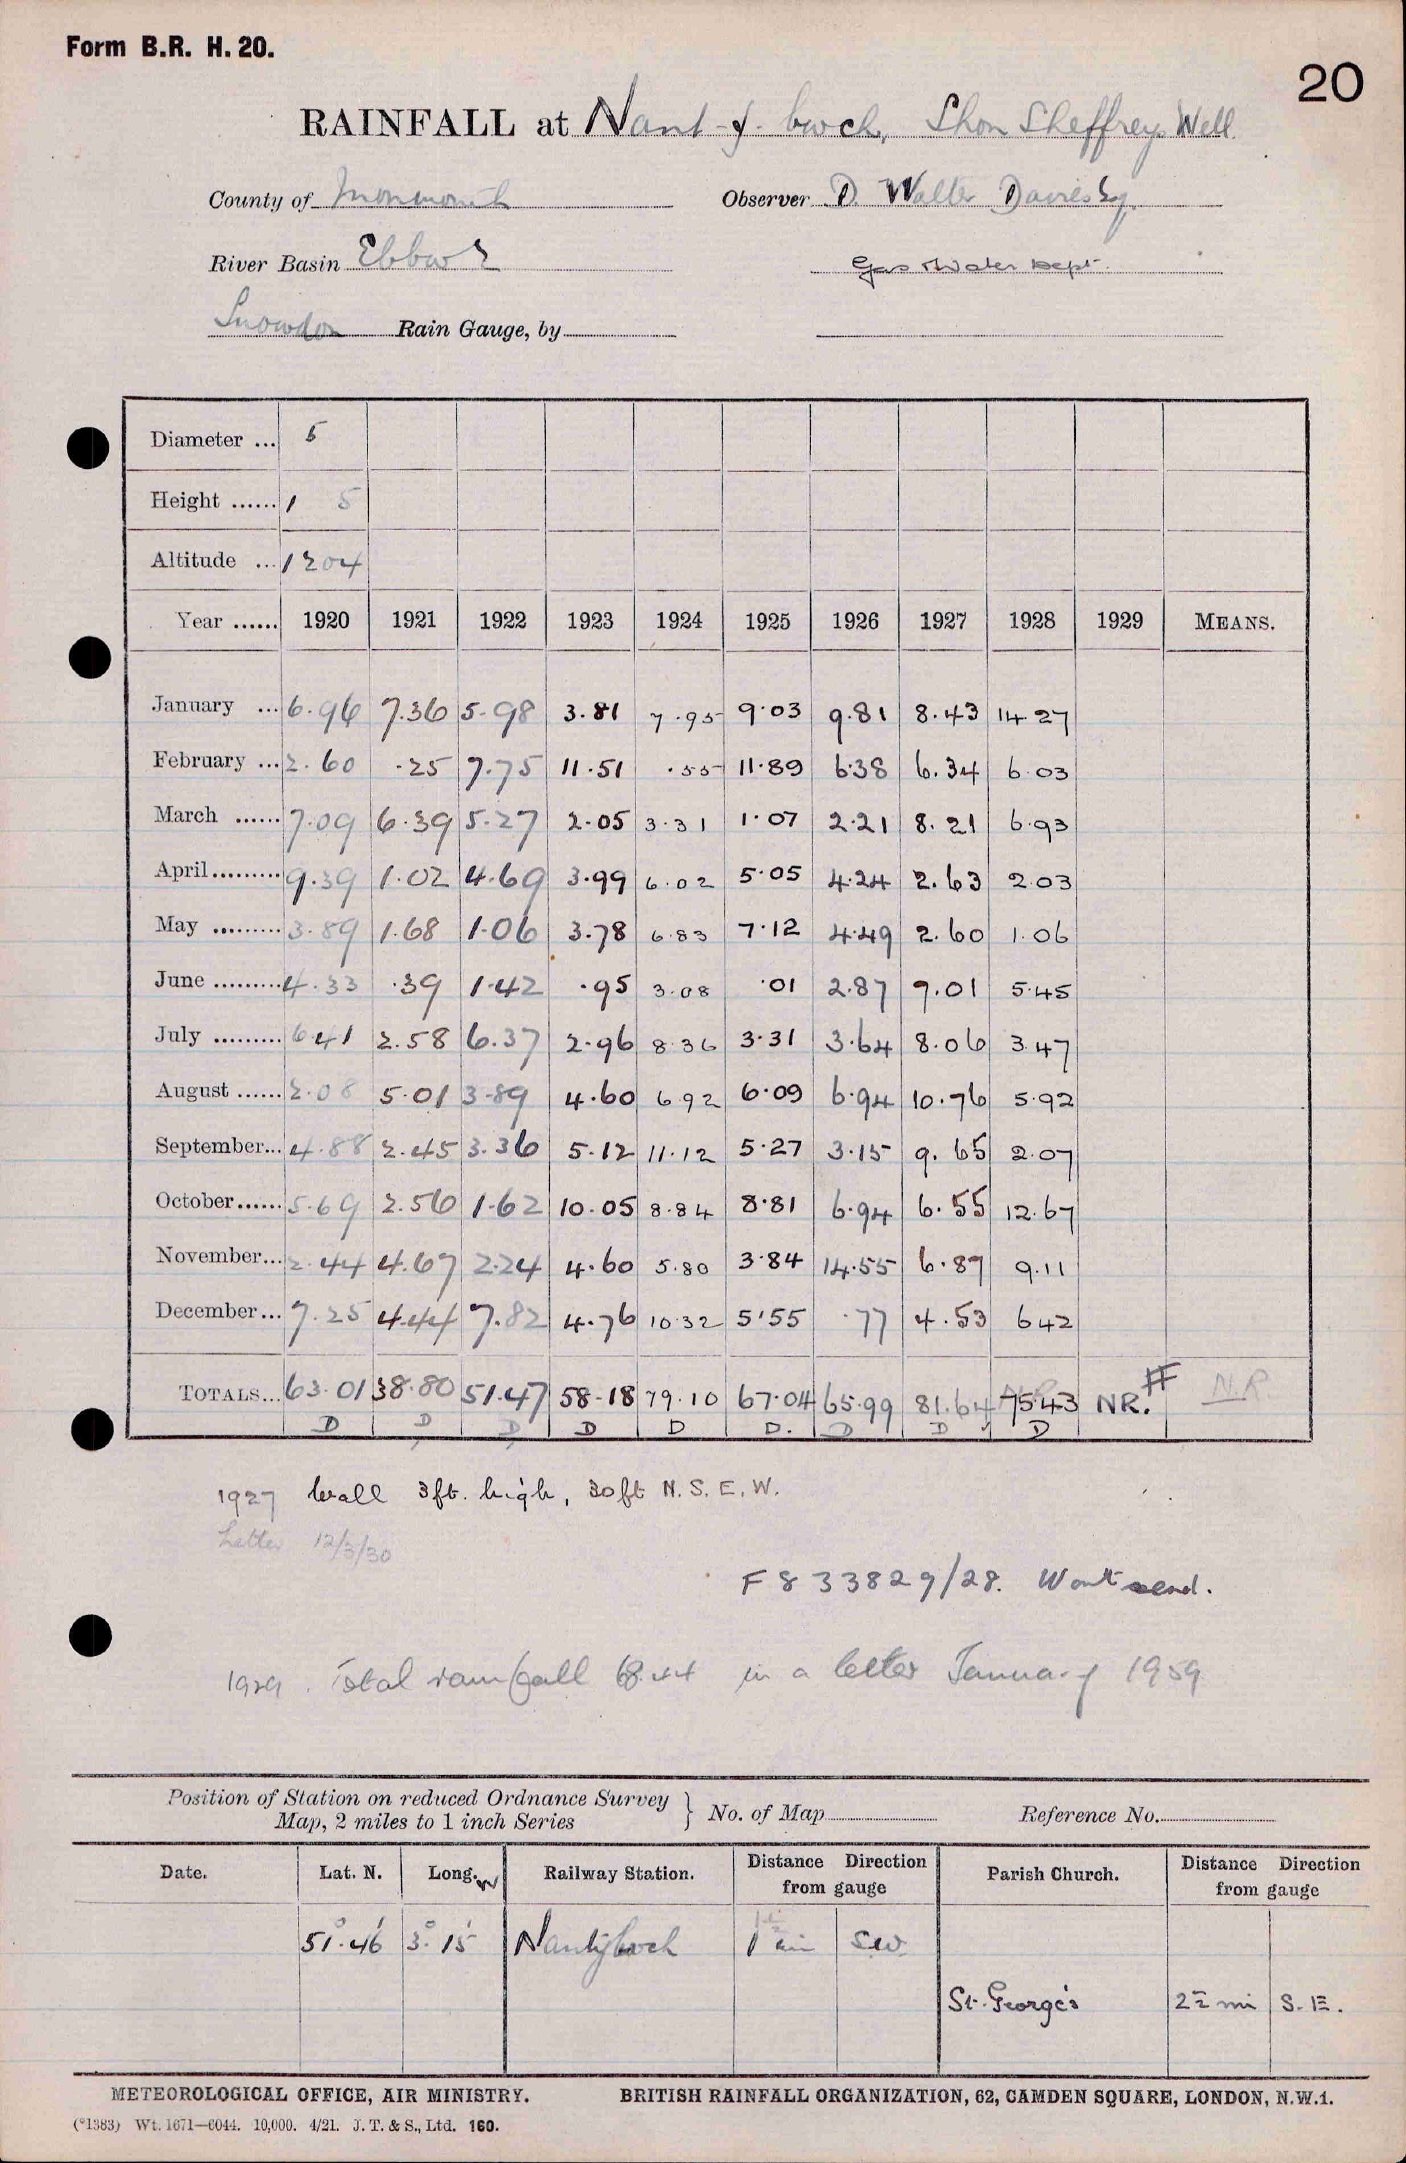 Form B.R. H. 20.
20
RAINFALL at Nant-y-bwch, Shon Sheffreys Well
County of Monmouth Observer D. Walter Davies Esq.
River Basin Ebbw Gas & Water Dept.
Snowdon Rain Gauge, by
Diameter ... 5
Height ...... 1 5
Altitude ... 1204
Year ...... 1920 1921 1922 1923 1924 1925 1926 1927 1928 1929 MEANS.
January ... 6.96 7.36 5.98 3.81 7.95 9.03 9.81 8.43 14.27
February ... 2.60 .25 7.75 11.51 .55 11.89 6.38 6.34 6.03
March ...... 7.09 6.39 5.27 2.05 3.31 1.07 2.21 8.21 6.93
April ......... 9.39 1.02 4.69 3.99 6.02 5.05 4.24 2.63 2.03
May ......... 3.89 1.68 1.06 3.78 6.83 7.12 4.49 2.60 1.06
June ......... 4.33 .39 1.42 .95 3.08 .01 2.87 7.01 5.45
July ......... 6.41 2.58 6.37 2.96 8.36 3.31 3.64 8.06 3.47
August ...... 2.08 5.01 3.89 4.60 6.92 6.09 6.94 10.76 5.92
September... 4.88 2.45 3.36 5.12 11.12 5.27 3.15 9.65 2.07
October...... 5.69 2.56 1.62 10.05 8.84 8.81 6.94 6.55 12.67
November... 2.44 4.67 2.24 4.60 5.80 3.84 14.55 6.87 9.11
December... 7.25 4.44 7.82 4.76 10.32 5.55 .77 4.53 6.42
TOTALS... 63.01 38.80 51.47 58.18 79.10 67.04 65.99 81.64 75.43 NR. # NR
D D D D D D. D D D
1927 Wall 3ft. high, 30ft N. S. E. W.
Letter 12/3/30
F 8 33829/28. Wont send.
1929. Total rainfall 68.44 in a letter January 1959
Position of Station on reduced Ordnance Survey
Map, 2 miles to 1 inch Series } No. of Map Reference No.
Date. Lat. N. Long. W Railway Station. Distance Direction from gauge Parish Church. Distance Direction from gauge
51° 46' 3° 15' Nantybwch 1 mi S.W.
St. George's 2½ mi S. E.
METEOROLOGICAL OFFICE, AIR MINISTRY. BRITISH RAINFALL ORGANIZATION, 62, CAMDEN SQUARE, LONDON, N.W.1.
(*1383) Wt. 1671—6044. 10,000. 4/21. J. T. & S., Ltd. 160.